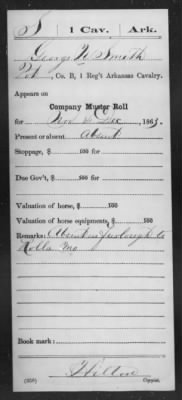 S | 1 Cav. | Ark.
George W Smith
Pvt, Co. B, 1 Reg't Arkansas Cavalry.
Appears on
Company Muster Roll
for Nov & Dec, 1863.
Present or absent Absent
Stoppage, $ 100 for
Due Gov't, $ 100 for
Valuation of horse, $ 100
Valuation of horse equipments, $ 100
Remarks: Absent on furlough to
Rolla Mo
Book mark:
Hilton
(358) Copyist.